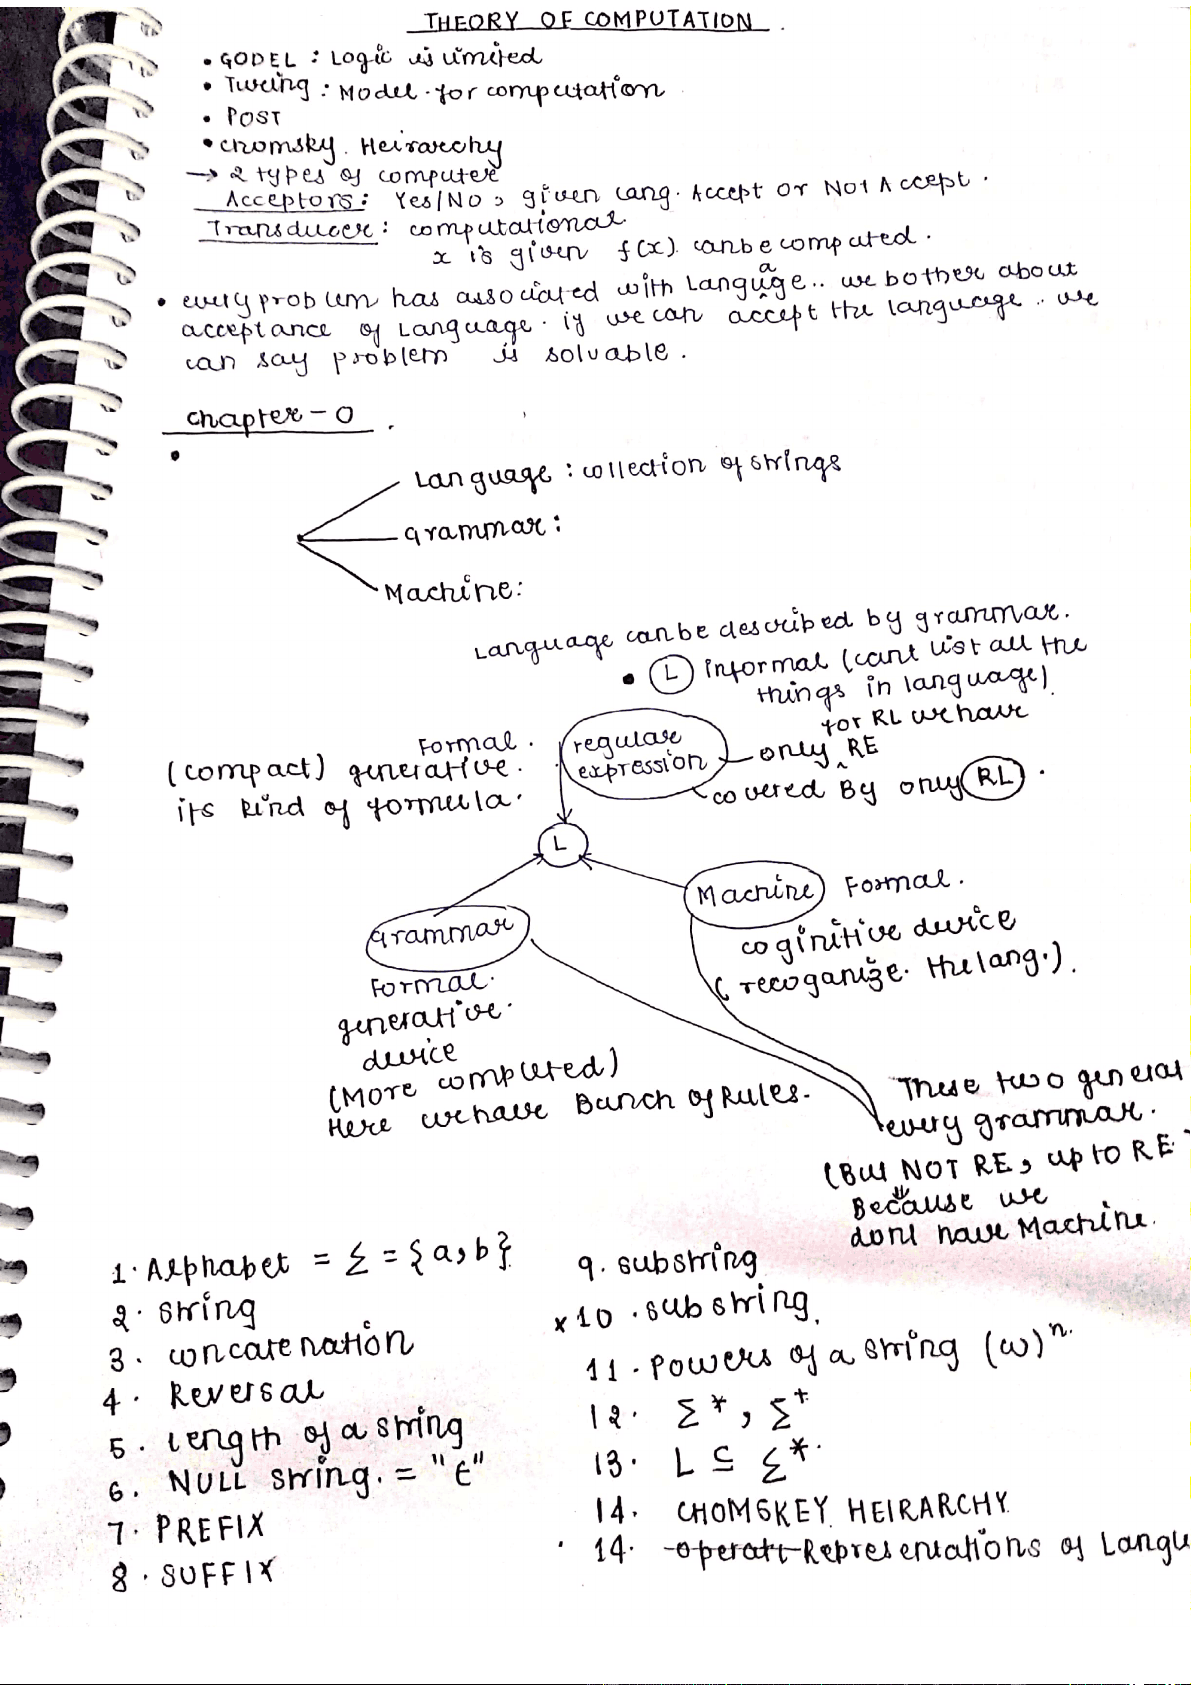 THEORY OF COMPUTATION.
• GODEL : Logic is limited
• Turing : Model for computation
• POST
• Chomsky. Heirarchy
→ 2 types of computer
Acceptors : Yes/No, given lang. Accept or Not Accept.
Transducer : computational.
x is given f(x) can be computed.
• every problem has associated with Language.. we bother about
acceptance of Language. if we can accept the language.. we
can say problem is solvable.
chapter - 0.
•
Language : collection of strings
Grammar :
Machine:
Language can be described by grammar.
• L informal (cant list all the
things in language)
for RL we have
Formal. regular only RE
(compact) generative. expression covered By only RL.
its kind of formula.
L
Machine Formal.
Grammar coginitive device
Formal. (recoganize. the lang.).
generative.
device
(More completed)
Here we have Bunch of Rules.
These two general
every grammar.
(But NOT RE, up to RE
Because we
dont have Machine.
1. Alphabet = Σ = {a,b}
2. string
3. concatenation
4. Reversal
5. Length of a string
6. NULL string. = "ϵ"
7. PREFIX
8. SUFFIX
9. substring
x 10. substring.
11. Powers of a string (w)ⁿ.
12. Σ*, Σ⁺
13. L ⊆ Σ*.
14. CHOMSKEY HEIRARCHY
. 14. Operati Representations of Langu